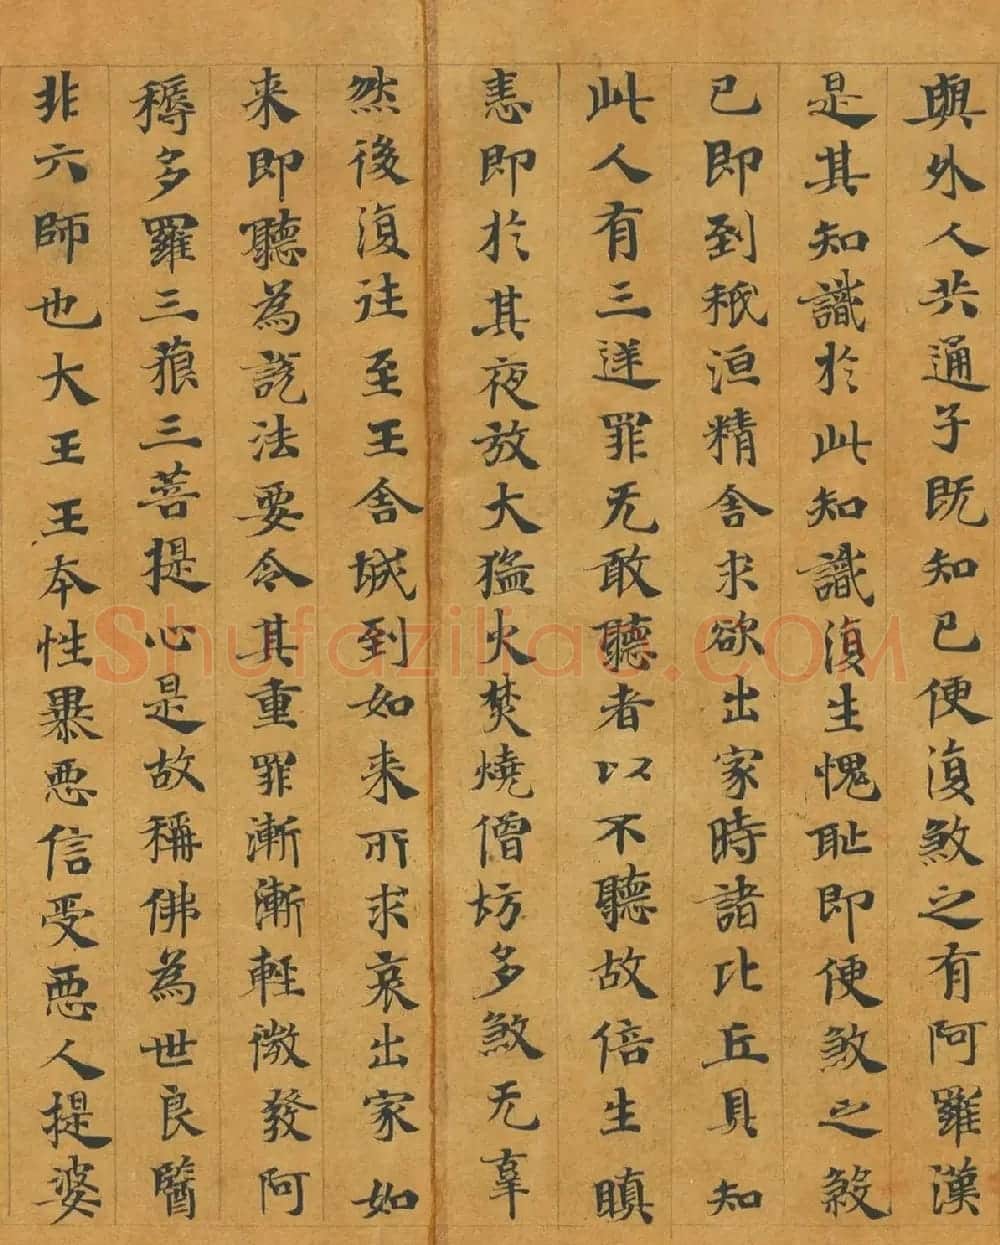 與外人共通子既知已便復煞之有阿羅漢
是其知識於此知識復生愧恥即便煞之煞
已即到秖洹精舍求欲出家時諸比丘具知
此人有三逆罪无敢聽者以不聽故倍生瞋
恚即於其夜放大猛火焚燒僧坊多煞无辜
然後復往至王舍城到如来所求哀出家如
来即聽為說法要令其重罪漸漸輕微發阿
耨多羅三藐三菩提心是故稱佛為世良醫
非六師也大王王本性暴惡信受惡人提婆
Shufaziliao.COM